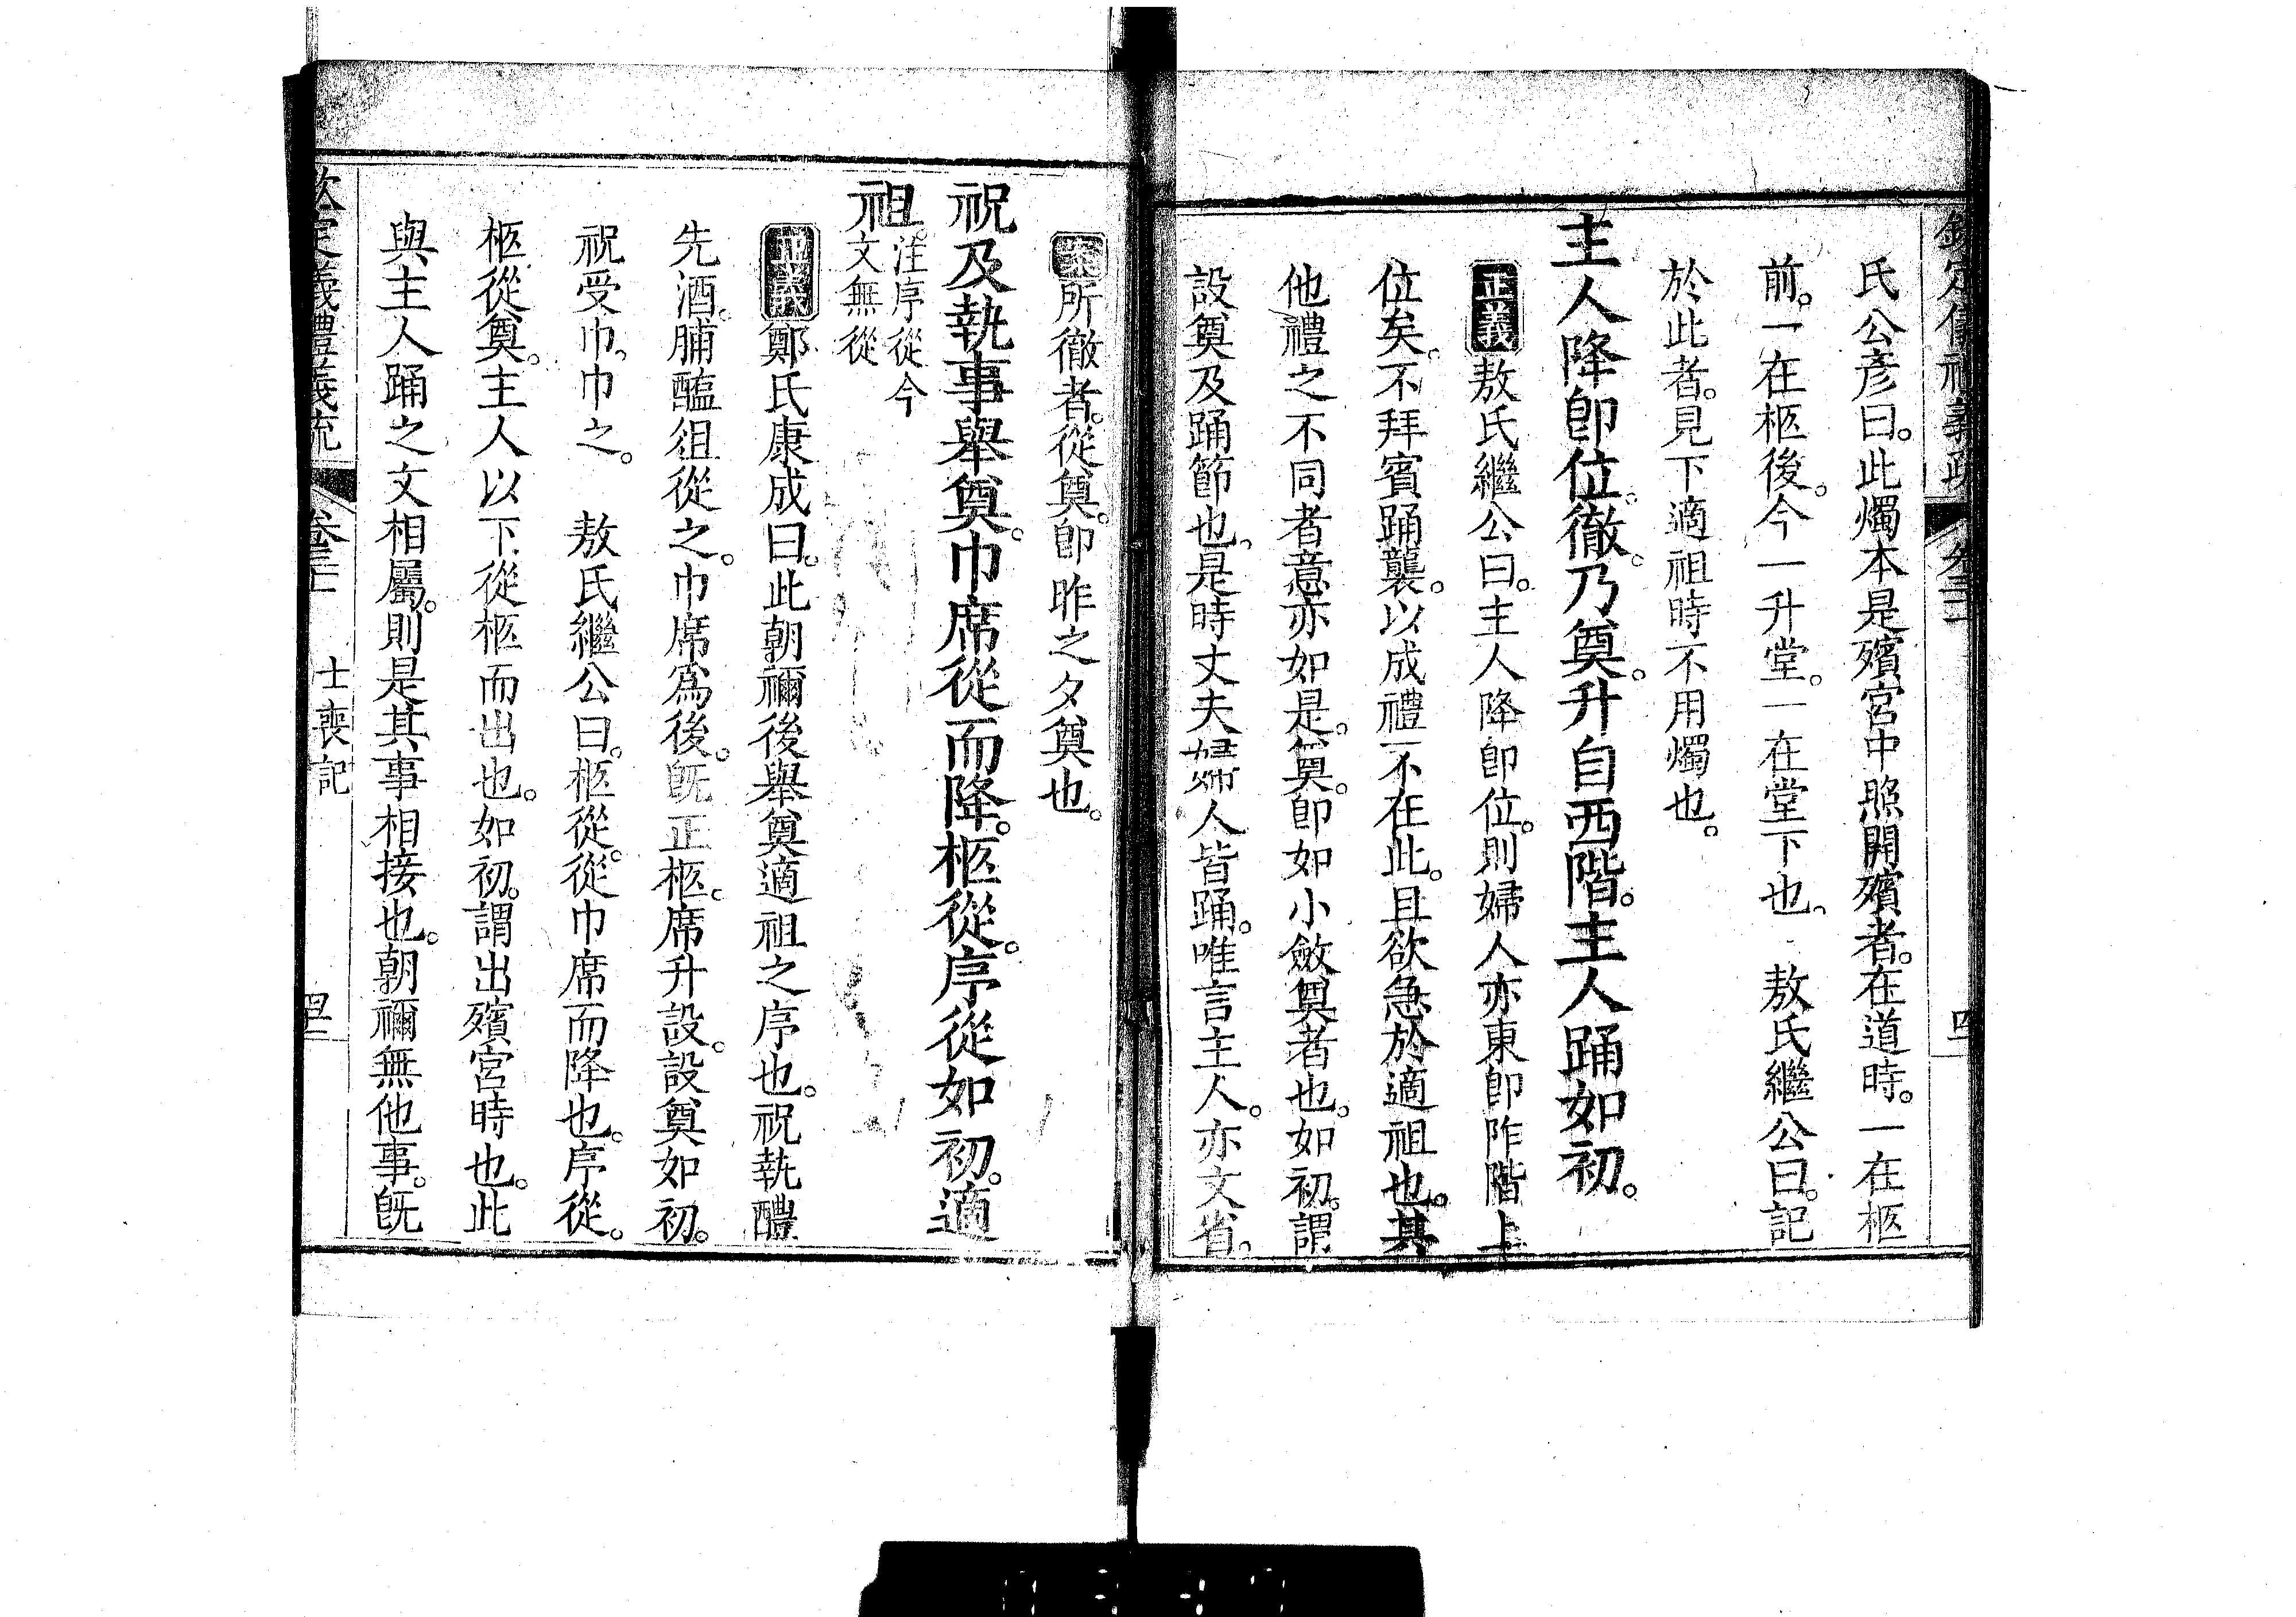 欽定儀禮義疏 卷三二 四
氏公彥曰。此燭本是殯宮中照開殯者。在道時。一在柩
前。一在柩後。今一升堂。一在堂下也。 敖氏繼公曰。記
於此者。見下適祖時不用燭也。
主人降卽位。徹。乃奠。升自西階。主人踊如初。
正義敖氏繼公曰。主人降卽位。則婦人亦東卽阼階上
位矣。不拜賓踊襲。以成禮不在此。且欲急於適祖也。其
他禮之不同者意亦如是。奠。卽如小斂奠者也。如初。謂
設奠及踊節也。是時丈夫婦人皆踊。唯言主人。亦文省。
案所徹者。從奠。卽昨之夕奠也。
祝及執事舉奠。巾席從而降。柩從。序從如初。適
祖。注序從今文無從
正義鄭氏康成曰。此朝禰後舉奠適祖之序也。祝執醴
先酒。脯醢俎從之。巾席爲後。旣正柩。席升設。設奠如初。
祝受巾。巾之。 敖氏繼公曰。柩從。從巾席而降也。序從。
柩從奠。主人以下從柩而出也。如初。謂出殯宮時也。此
與主人踊之文相屬。則是其事相接也。朝禰無他事。旣
欽定儀禮義疏 卷三二 士喪記 四二